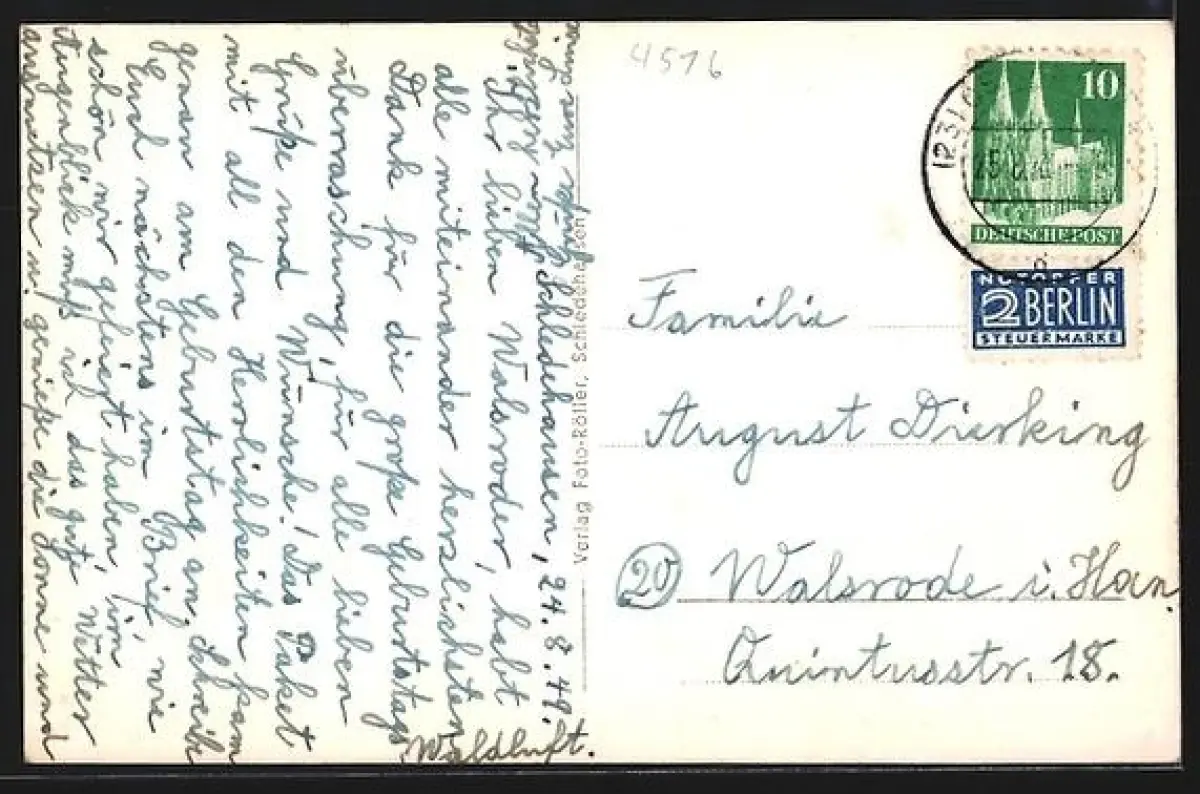 Schledehausen, 24.8.49.
Ihr lieben Walsroder, habt
alle miteinander herzlichsten
Dank für die große Geburtstags
überraschung, für alle lieben
Grüße und Wünsche! Das Paket
mit all den Herrlichkeiten kam
genau am Geburtstag an. Schreibe
Euch nächstens im Brief, wie
schön wir gefeiert haben, im
Augenblick muß ich das gute Wetter
ausnutzen u. genieße die Sonne und
Waldluft.
Verlag Foto-Röller, Schledehausen
4516
10
DEUTSCHE POST
NOTOPFER
2 BERLIN
STEUERMARKE
Familie
August Dierking
20 Walsrode i. Han.
Quintusstr. 18.